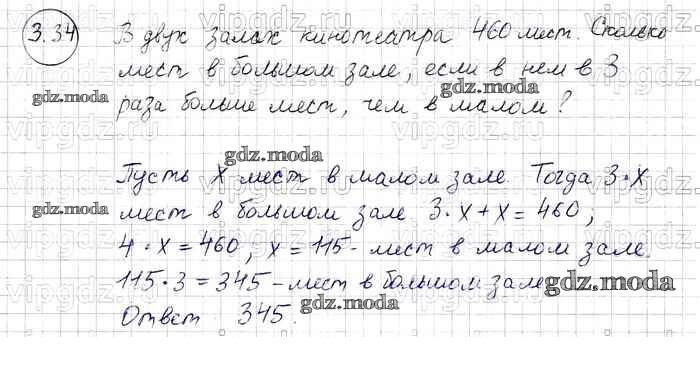 3.34 В двух залах кинотеатра 460 мест. Сколько
мест в большом зале, если в нем в 3
раза больше мест, чем в малом?
Пусть x мест в малом зале. Тогда 3·x
мест в большом зале. 3·x+x=460;
4·x=460; x=115 - мест в малом зале.
115·3=345 - мест в большом зале
Ответ 345.
gdz.moda
gdz.moda
gdz.moda
gdz.moda
gdz.moda
gdz.moda
gdz.moda